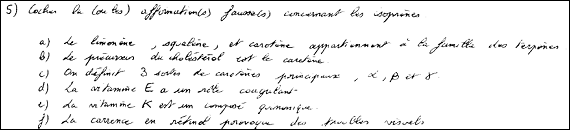 5) Cocher la (ou les) affirmation(s) fausse(s) concernant les isoprènes
a) Le limonène, squalène, et carotène appartiennent à la famille des terpènes
b) Le précurseur du cholestérol est le carotène.
c) On définit 3 sortes de carotènes principaux, α, β et γ
d) La vitamine E a un rôle coagulant.
e) La vitamine K est un composé quinonique.
f) La carence en rétinol provoque des troubles visuels